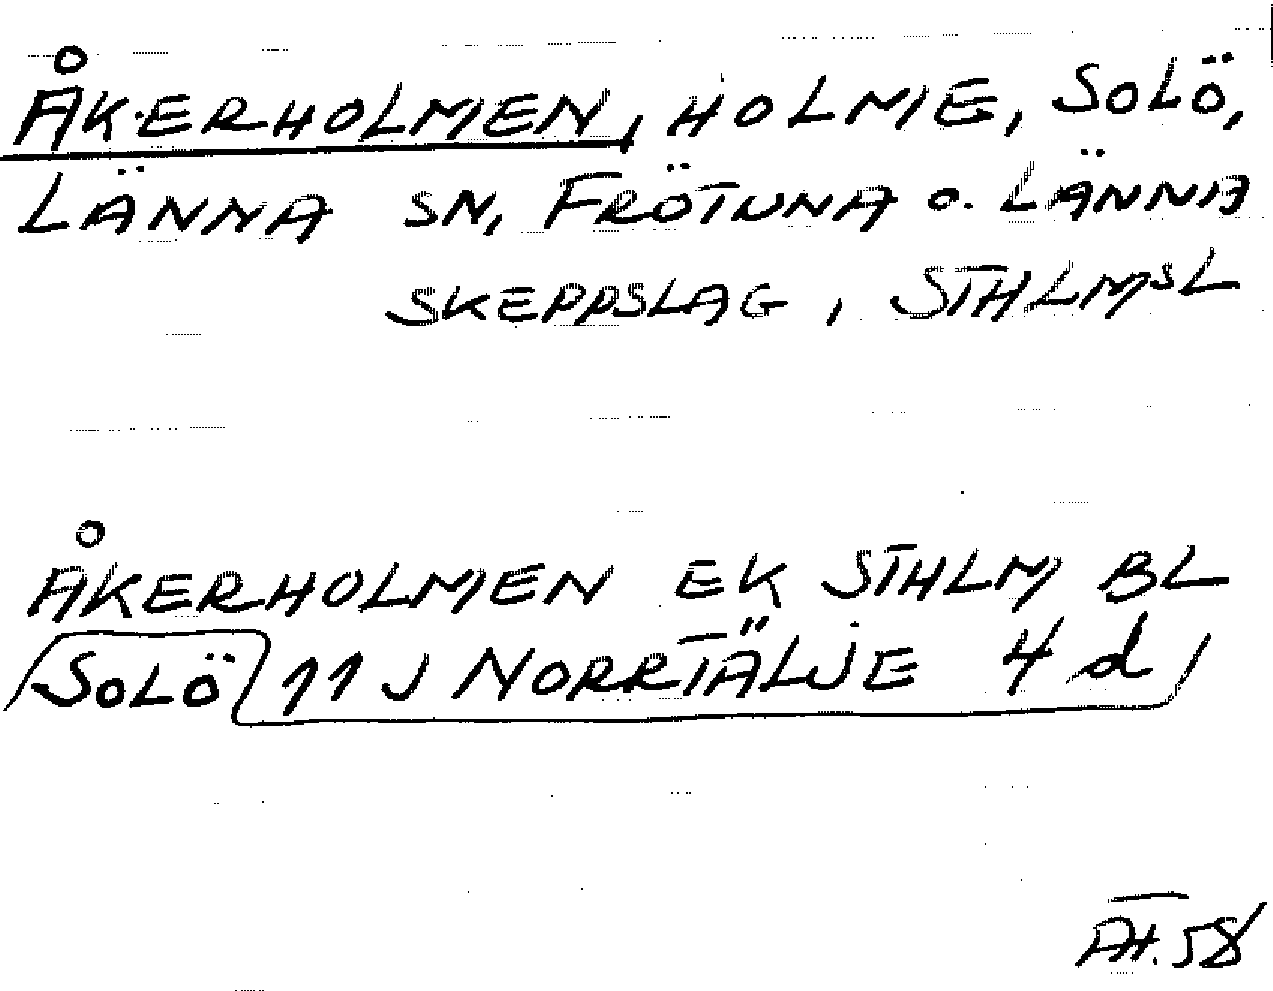 ÅKERHOLMEN, HOLME, SOLÖ,
LÄNNA SN, FRÖTUNA o. LÄNNA
SKEPPSLAG, STHLMSL
ÅKERHOLMEN EK STHLM BL
SOLÖ 11 J NORRTÄLJE 4 d
ÅH. 58